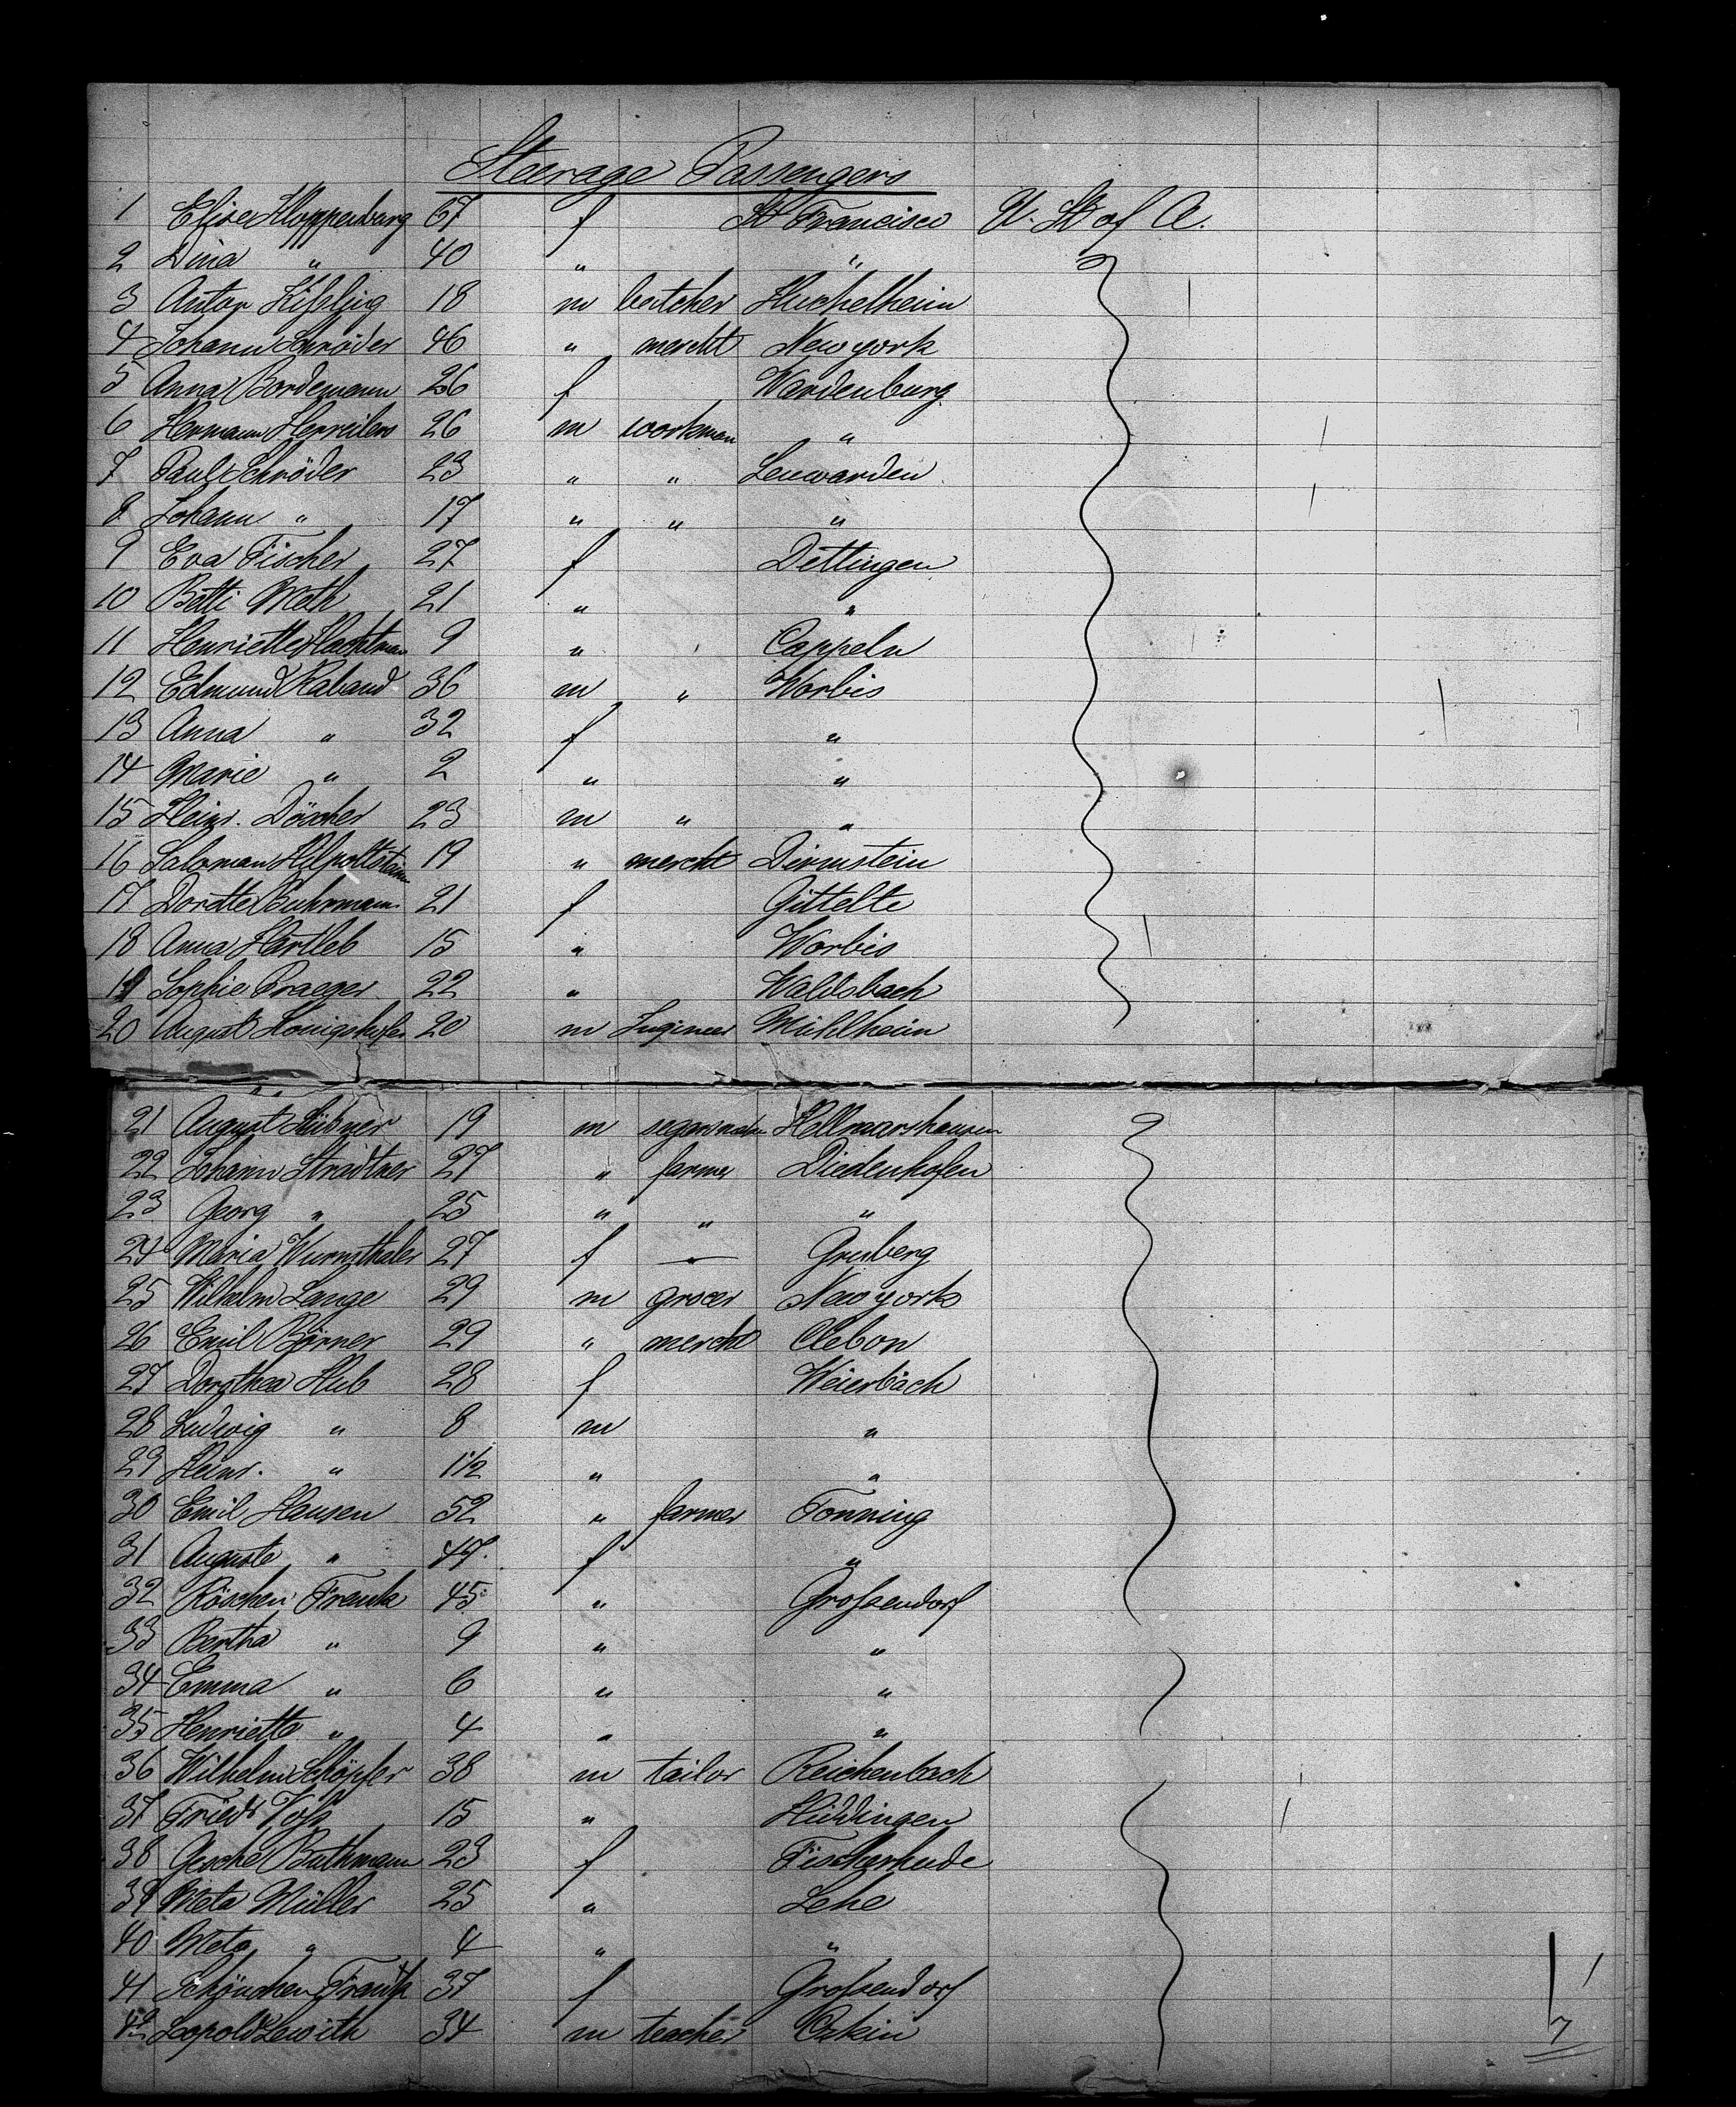 Steerage Passengers
1 Elise Kloppenburg 67 f St Francisco U. St of A.
2 Dina " 40 " "
3 Anton Kißling 18 m butcher Huchelheim
4 Johann Schröder 46 " mercht New york
5 Anna Bordemann 26 f Wardenburg
6 Hermann 26 m workman "
7 Paul Schröder 23 " " Leuwarden
8 Johann " 17 " " "
9 Eva Fischer 27 f Dettingen
10 Betti Meth 21 " "
11 Henriette Hachtman 9 " Cappeln
12 Edmund Raband 36 m " Worbis
13 Anna " 32 f "
14 Marie " 2 " "
15 Heinr. Döscher 23 m " "
16 Saloman 19 " mercht Dirmstein
17 Dordte Buhrmann 21 f Gittelte
18 Anna Hartleb 15 " Worbis
19 Sophie Praeger 22 " Waldsbach
20 August Königshofer 20 m Ingineer Mühlheim
21 August Hübner 19 m segarmaker Hellmarshausen
22 Johann Stradtner 27 " farmer Diedenhofen
23 Georg " 25 " " "
24 Maria Wurmthaler 27 f — Gruberg
25 Wilhelm Lange 29 m grocer New york
26 Emil Börner 29 " mercht Clebon
27 Dorothea Hub 28 f Weierbach
28 Ludwig " 8 m "
29 Heinr. " 1 1/2 " "
30 Emil Hansen 52 " farmer Tonning
31 Auguste " 47 f "
32 Röschen Frank 45 " Großendorf
33 Bertha " 9 " "
34 Emma " 6 " "
35 Henriette " 4 " "
36 Wilhelm Schöpfer 38 m tailor Reichenbach
37 Friedr Voß 15 " Hiddingen
38 Gesche Buthmann 23 f Fischerhude
39 Meta Müller 25 " Lehe
40 Meta " 4 " "
41 Schönchen Frank 37 f Großendorf
42 Leopold Lewith 34 m teacher
7